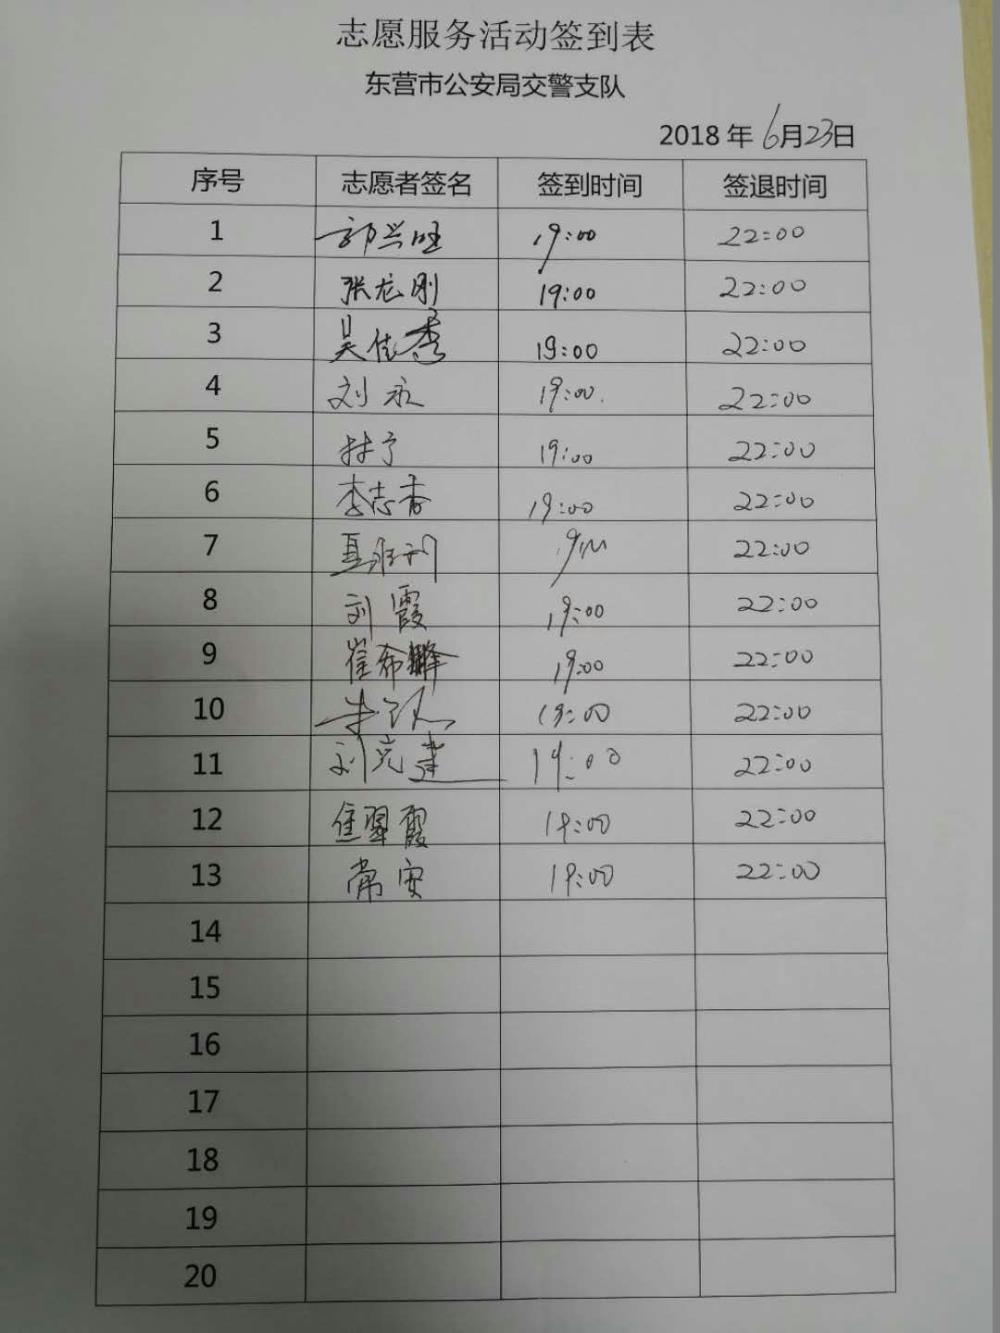 志愿服务活动签到表
东营市公安局交警支队
2018 年 6月23日
序号 志愿者签名 签到时间 签退时间
1 郭兴旺 19:00 22:00
2 张龙刚 19:00 22:00
3 吴佳秀 19:00 22:00
4 刘永 19:00 22:00
5 林宁 19:00 22:00
6 李志香 19:00 22:00
7 22:00
8 刘霞 19:00 22:00
9 崔希 19:00 22:00
10 19:00 22:00
11 刘完建 19:00 22:00
12 焦翠霞 19:00 22:00
13 常安 19:00 22:00
14
15
16
17
18
19
20